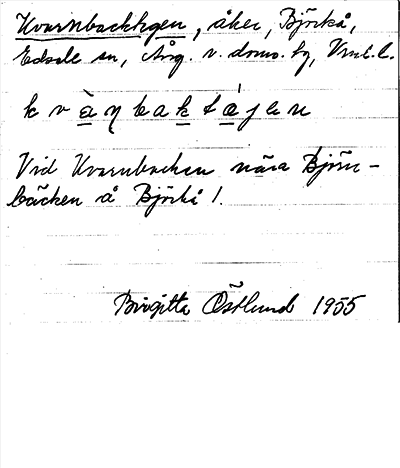 Kvarnbacktegen, åker, Björkå,
Edsele sn, Ång. v. doms. hg, Vnrl. l.
k v à ŋ b a k t á j e n
Vid Kvarnbacken nära Björn-
bäcken å Björkå 1.
Birgitta Östlund 1955